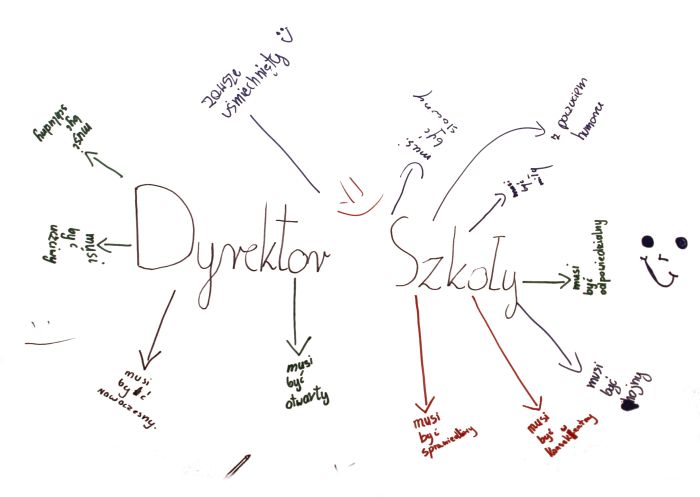 zawsze
uśmiechnięty
z poczuciem
humoru
musi
być
musi
być
schludny
musi
być
uczciwy
Dyrektor
Szkoły
musi
być
odpowiedzialny
musi
być
nowoczesny.
musi
być
otwarty
musi
być
hojny
musi
być
sprawiedliwy
musi
być